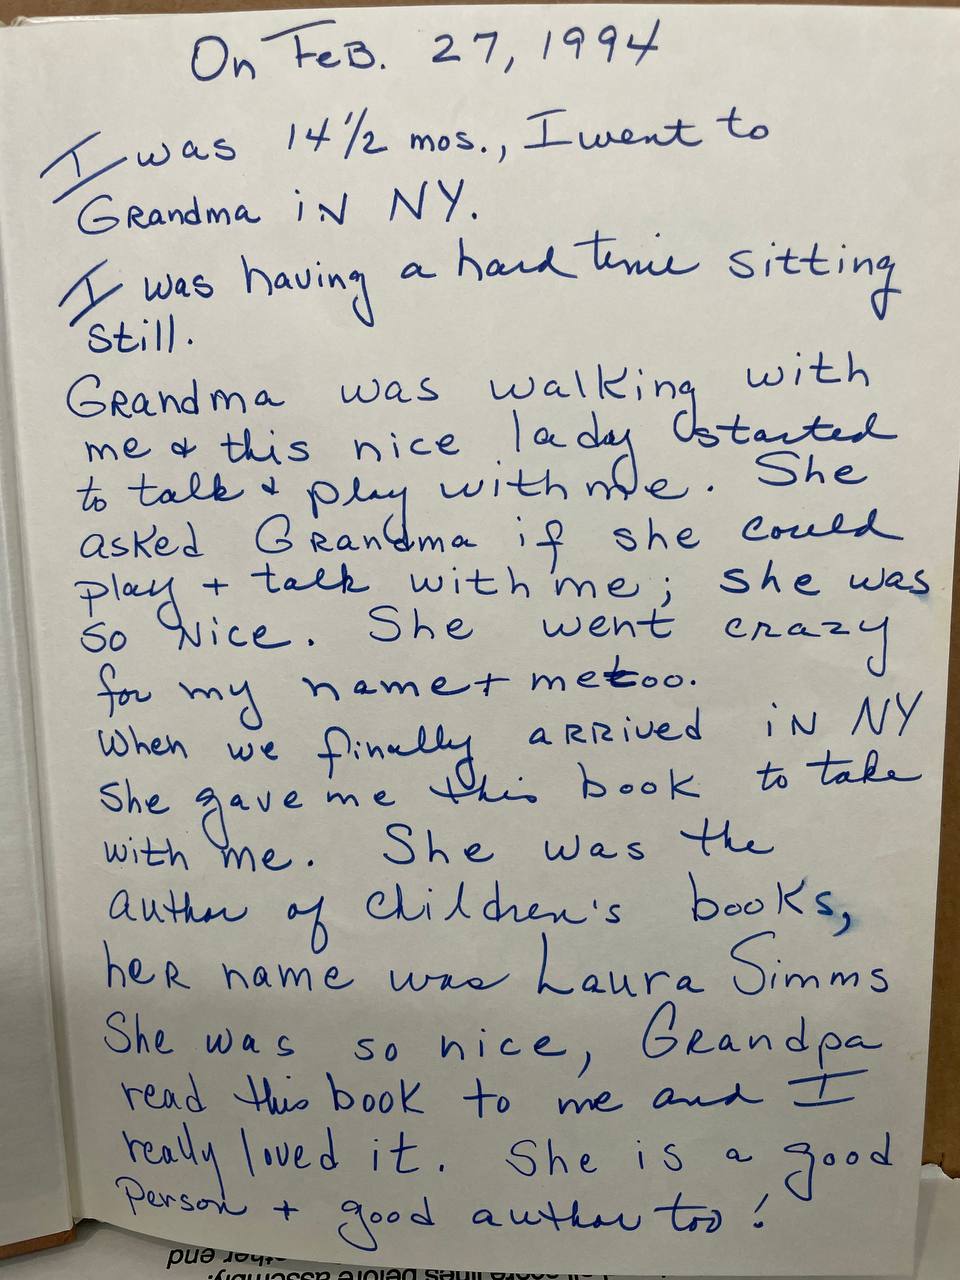 On FeB. 27, 1994
I was 14 1/2 mos., I went to
Grandma iN NY.
I was having a hard time sitting
still.
Grandma was walking with
me & this nice lady started
to talk & play with me. She
asked Grandma if she could
play + talk with me; she was
so Nice. She went crazy
for my name + me too.
When we finally aRRived iN NY
She gave me this book to take
with me. She was the
author of children's books,
heR name was Laura Simms
She was so nice, Grandpa
read this book to me and I
really loved it. She is a good
Person + good author too!